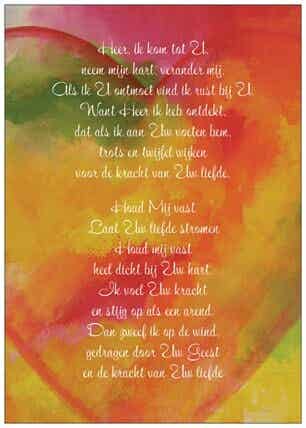 Heer, ik kom tot U,
neem mijn hart, verander mij.
Als ik U ontmoet vind ik rust bij U.
Want Heer ik heb ontdekt,
dat als ik aan Uw voeten ben,
trots en twijfel wijken
voor de kracht van Uw liefde.
Houd Mij vast
Laat Uw liefde stromen
Houd mij vast
heel dicht bij Uw hart.
Ik voel Uw kracht
en stijg op als een arend.
Dan zweef ik op de wind,
gedragen door Uw Geest
en de kracht van Uw liefde